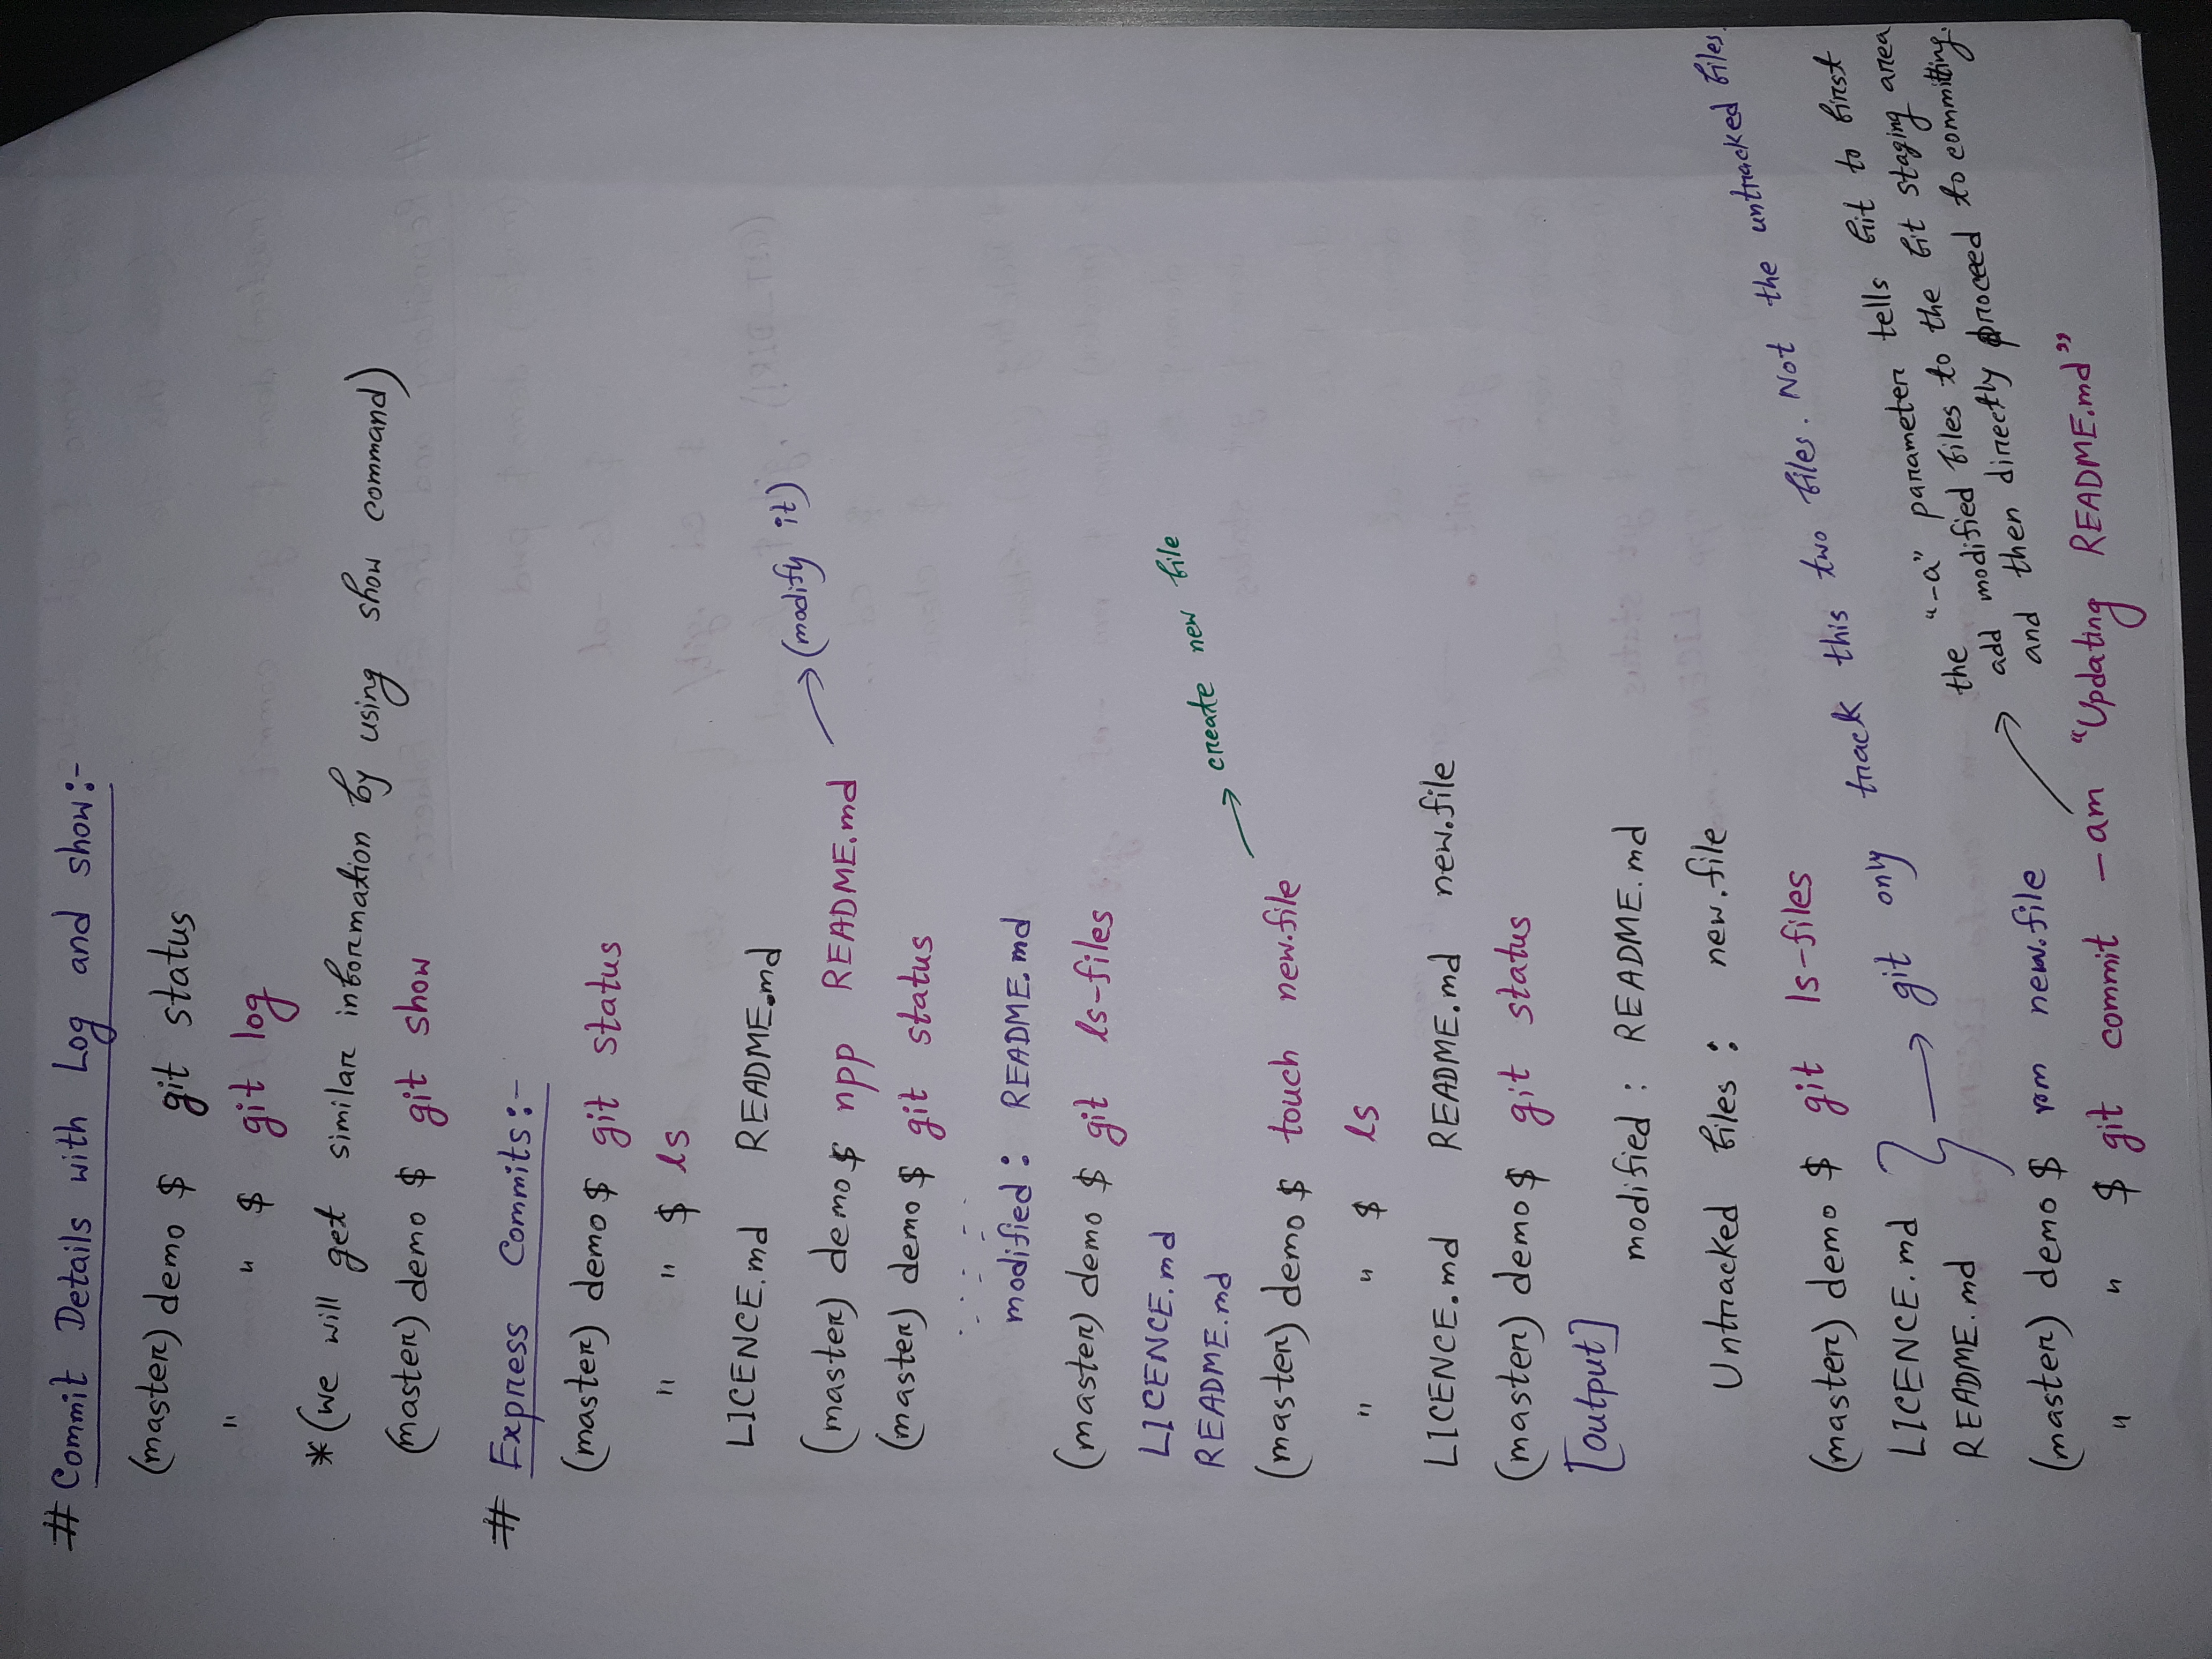 # Commit Details with Log and show:-
(master) demo $ git status
" " $ git log
*(we will get similar information by using show command)
(master) demo $ git show
# Express Commits:-
(master) demo $ git status
" " $ ls
LICENCE.md README.md
(master) demo $ npp README.md → (modify it)
(master) demo $ git status
modified: README.md
(master) demo $ git ls-files
LICENCE.md
README.md
(master) demo $ touch new.file → create new file
" " $ ls
LICENCE.md README.md new.file
(master) demo $ git status
[output]
modified: README.md
Untracked files: new.file
(master) demo $ git ls-files
LICENCE.md
README.md
} → git only track this two files. Not the untracked files.
(master) demo $ rm new.file
" " $ git commit -am "Updating README.md"
→ the "-a" parameter tells Git to first
add modified files to the Git staging area
and then directly proceed to committing.